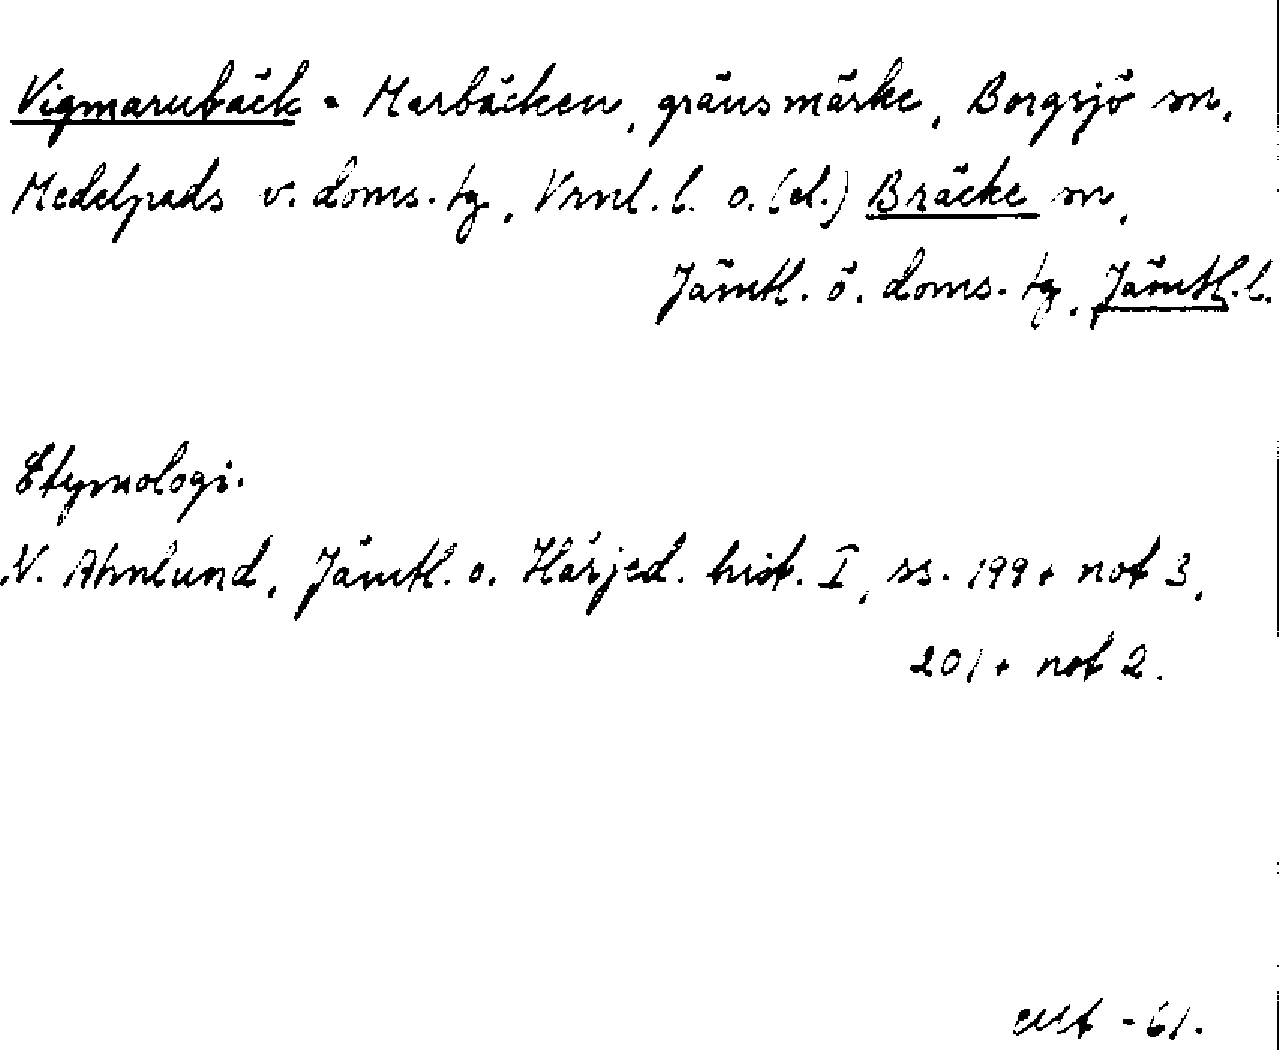 Vigmarubäck = Marbäcken, gränsmärke, Borgsjö sn,
Medelpads v. doms. tg, Vrnl. l. o. (el.) Bräcke sn,
Jämtl. ö. doms. tg, Jämtl. l.
Etymologi.
N. Ahnlund, Jämtl. o. Härjed. hist. I, ss. 199 + not 3,
201 + not 2.
-61.